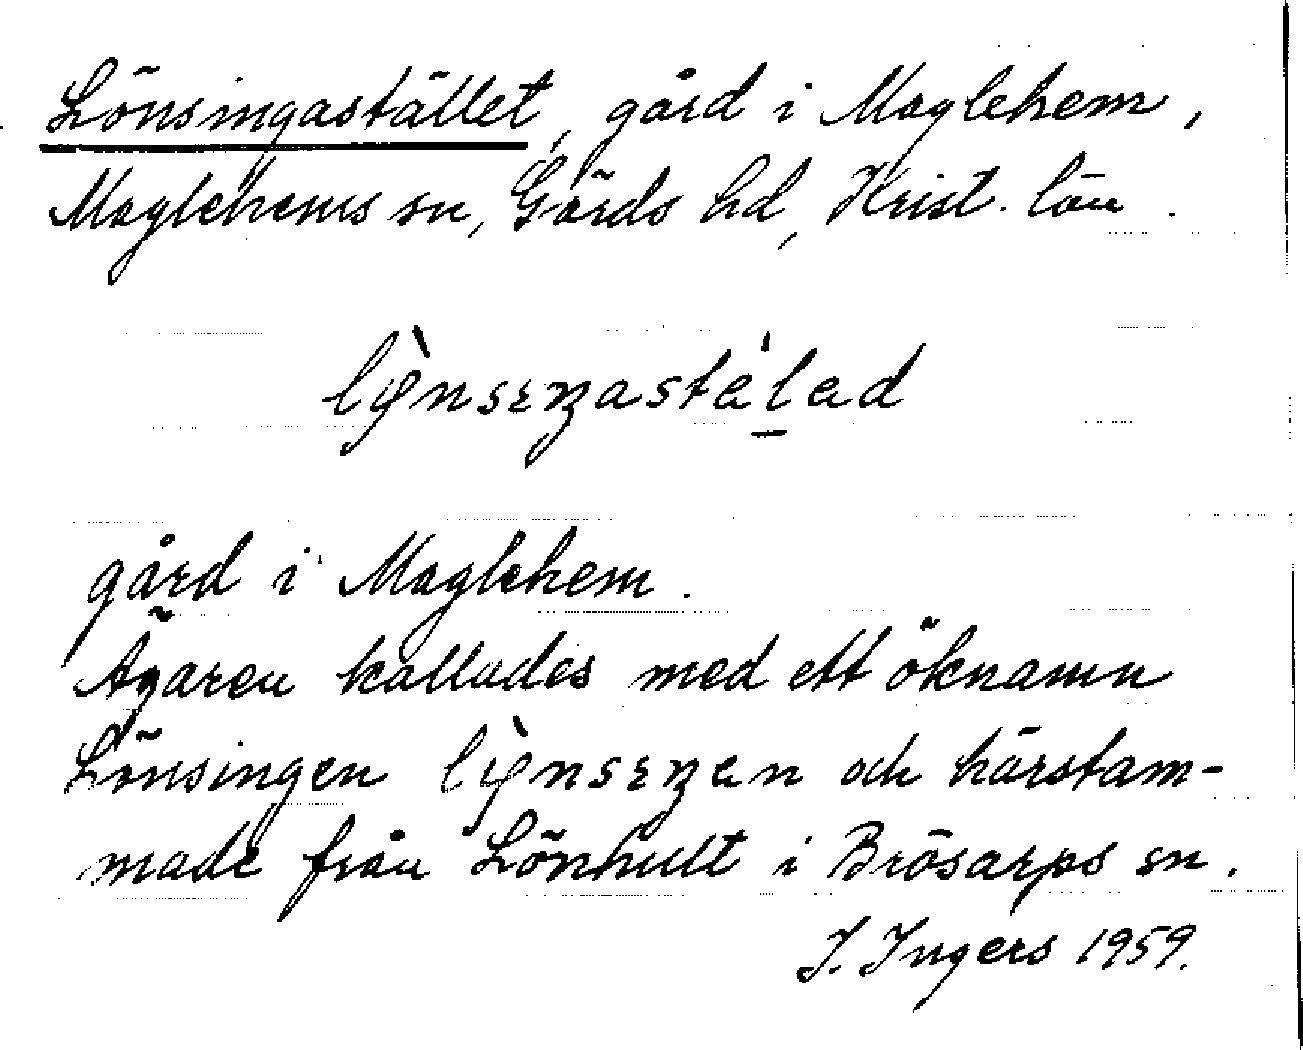 Lönsingastället, gård i Maglehem,
Maglehems sn, Gärds hd, Krist. län.
gård i Maglehem.
Ägaren kallades med ett öknamn
Lönsingen och härstam-
made från Lönhult i Brösarps sn.
I. Ingers 1959.